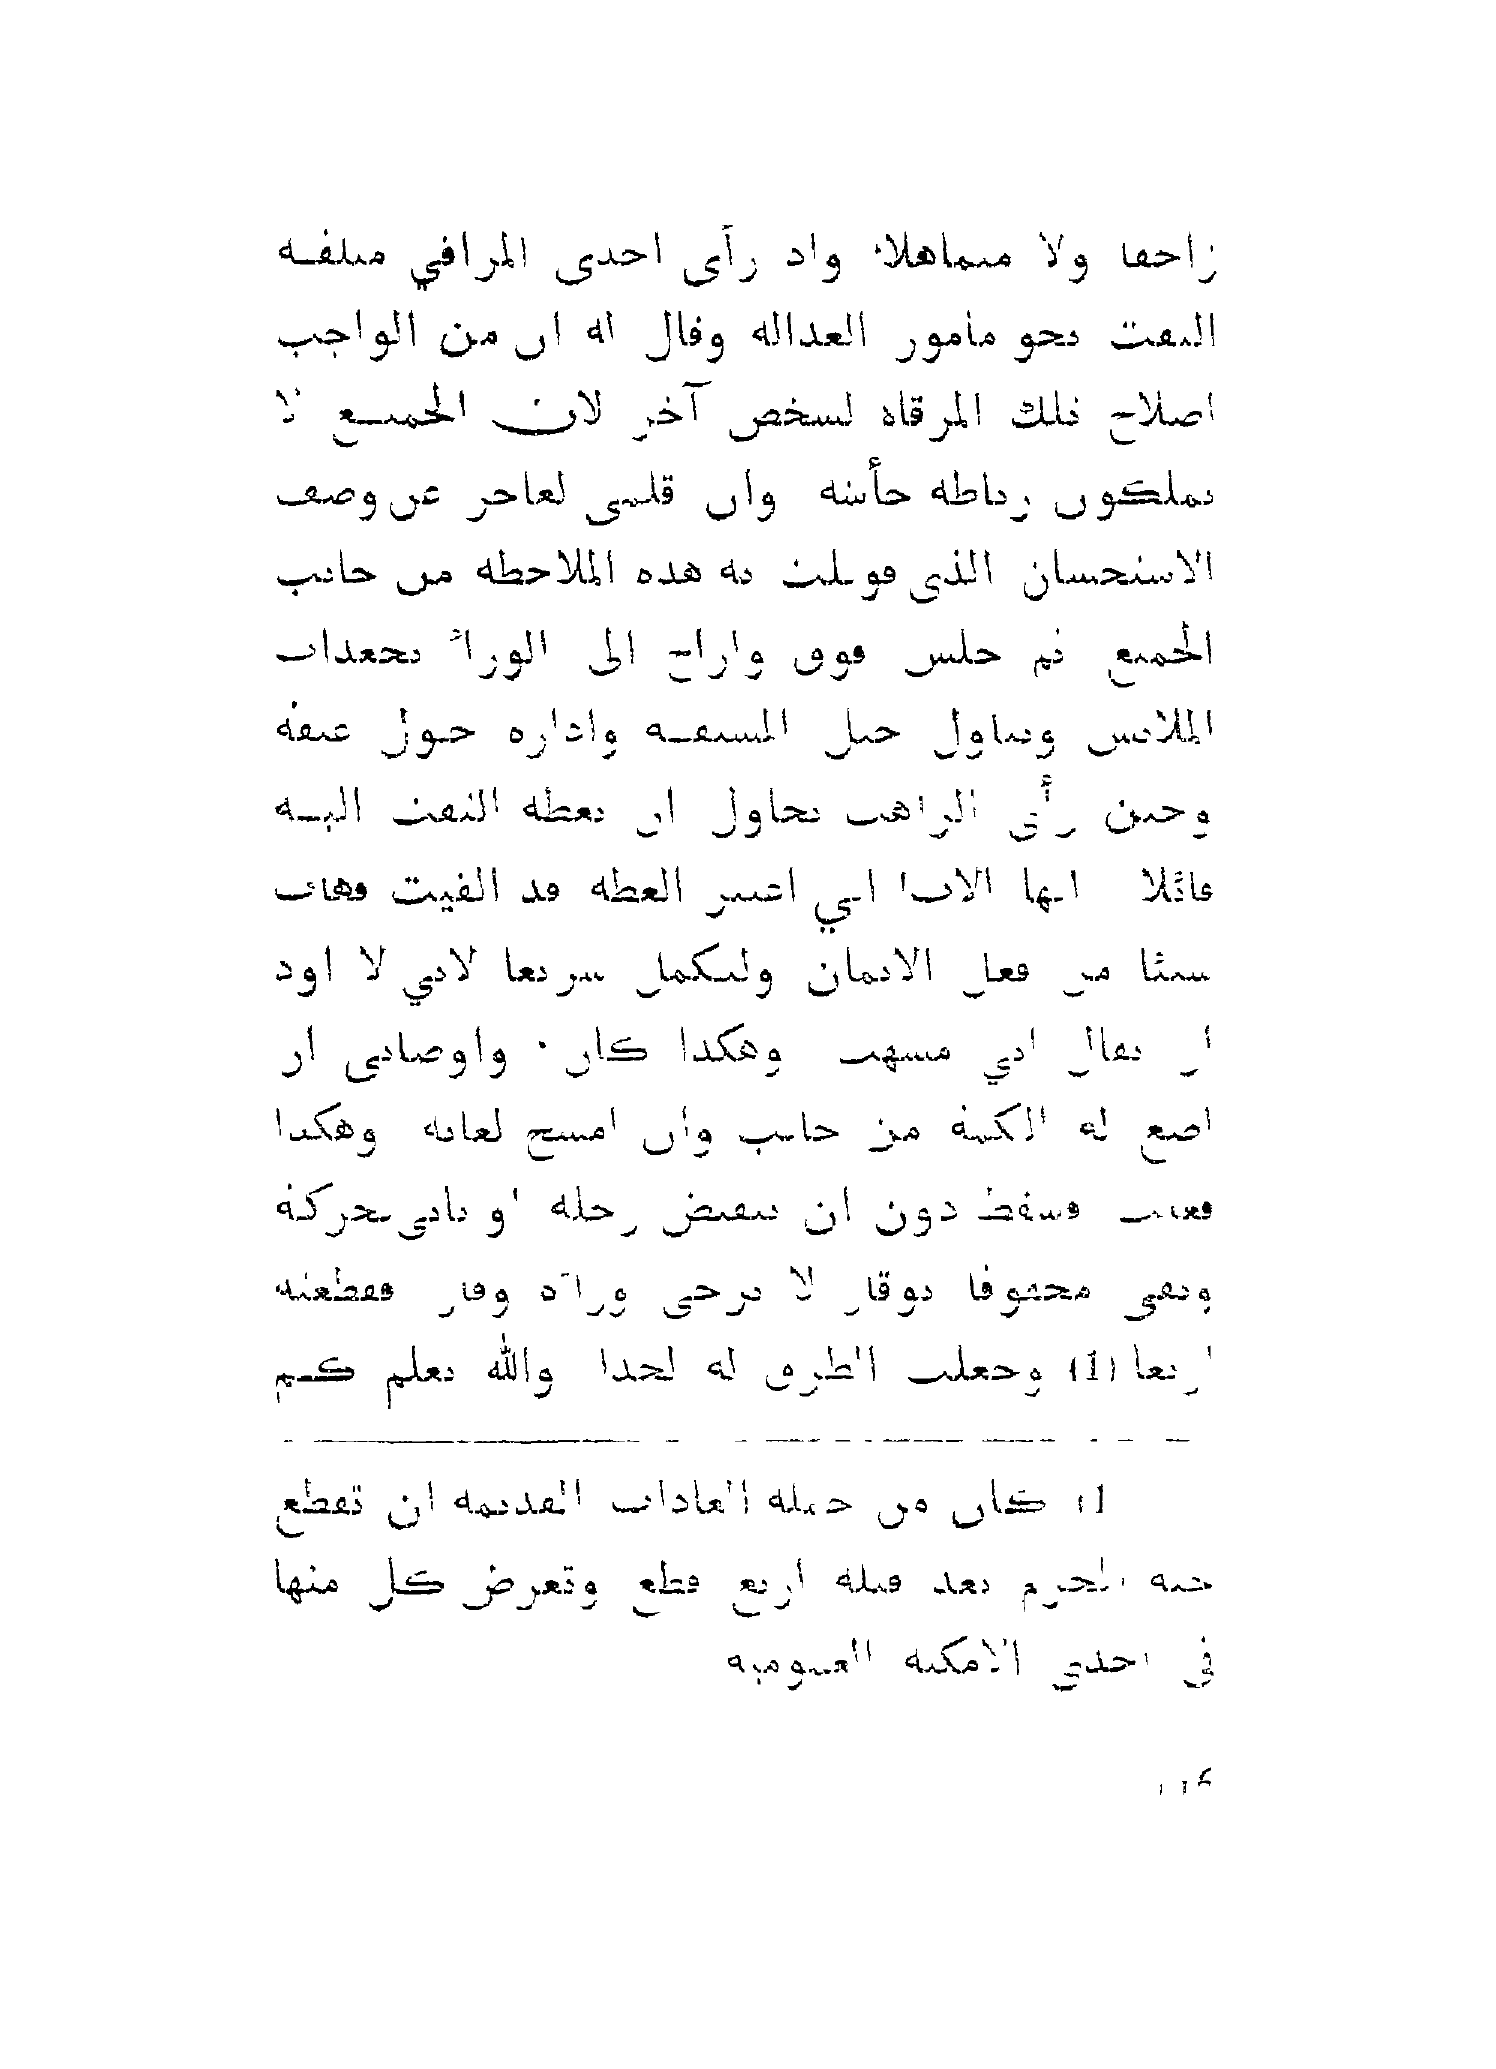 زاحفا ولا متماهلا. واذ رأى احدى المراقي متلفــة
التفت نحو مأمور العدالة وقال له ان من الواجب
اصلاح تلك المرقاة لشخص آخر لان الجميــع لا
يملكون رباطة جأشه وان قلمي لعاجز عن وصف
الاستحسان الذي قوبلت به هذه الملاحظة من جانب
الجميع ثم جلس فوق وازاح الى الوراء تجعدات
الملابس وتناول حبل المشنقــة واداره حــول عنقه
وحين رأى الراهب يحاول ان يعظه التفت اليــه
قائلا ايها الاب! اني اعتبر العظة قد القيت فهات
شيئا من فعل الايمان وليكمل سريعا لاني لا اود
ان يقال اني مسهب وهكذا كان. واوصاني ان
اضع له الكبة من جانب وان امسح لعابه وهكذا
فعلت فسقط دون ان تنقبض رجله او يأتي بحركة
وبقي محفوفا بوقار لا يرجى وراءه وقار فقطعته
اربعا (1) وجعلت الطرق له لحدا والله يعلم كــم
1) كان من جملة العادات القديمة ان تقطع
جثة المجرم بعد قتله اربع قطع وتعرض كل منها
في احدى الامكنة العمومية